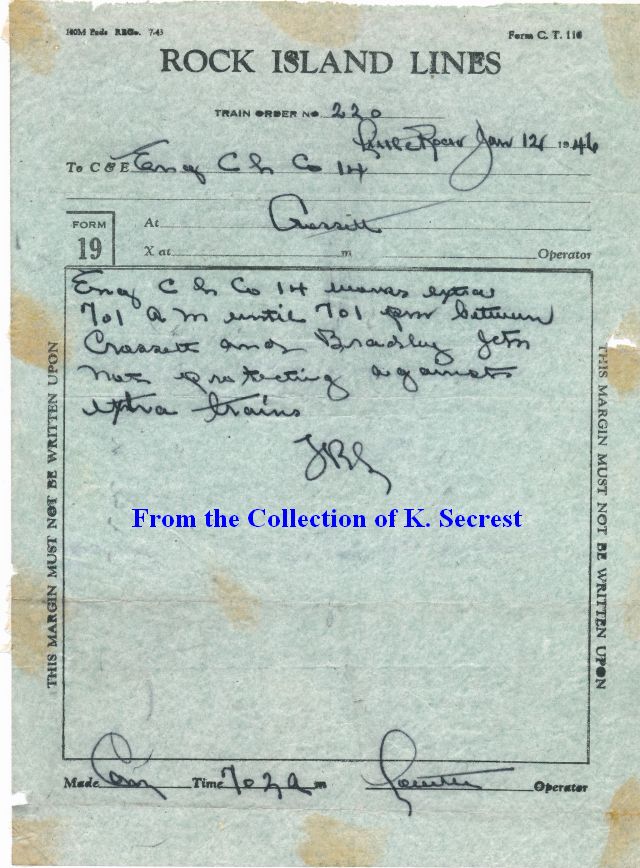 100M Pads REGo. 7-43
Form C. T. 116
ROCK ISLAND LINES
TRAIN ORDER NO. 220
Little Rock Jan 12 1946
To C & E Eng C L Co 14
FORM
19
At Crossett
X at m Operator
Eng C L Co 14 works extra
701 AM until 701 pm between
Crossett and Bradley Jctn
not protecting against
extra trains
From the Collection of K. Secrest
THIS MARGIN MUST NOT BE WRITTEN UPON
THIS MARGIN MUST NOT BE WRITTEN UPON
Made Com Time 702 A m Operator